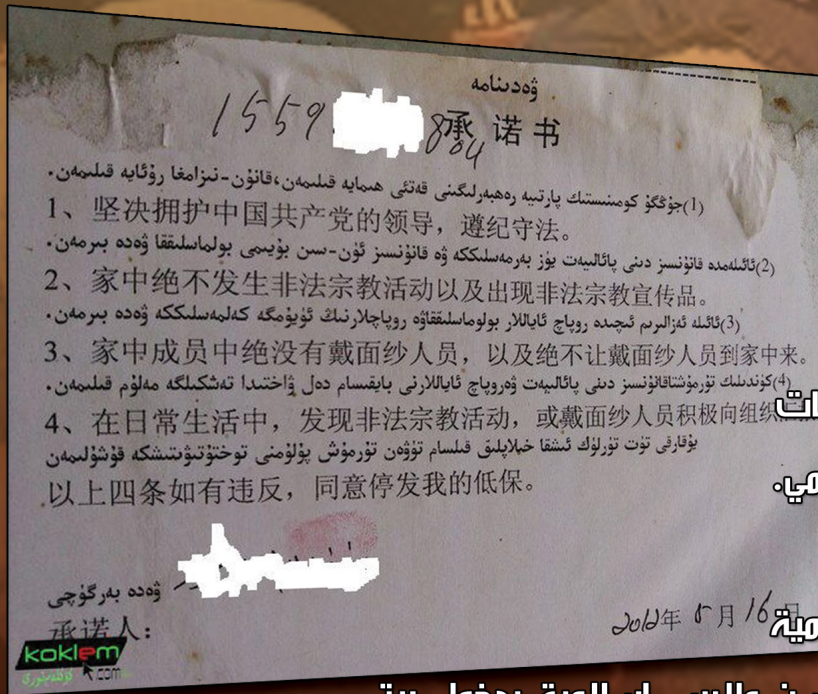 ۋەدىنامە
1559 804
承诺书
(1)جۇڭگۇ كوممىنىستىك پارتىيە رەھبەرلىگىنى قەتئى ھىمايە قىلىمەن،قانۇن-نىزامغا رۇئايە قىلىمەن.
1、坚决拥护中国共产党的领导，遵纪守法。
(2)ئائىلەمدە قانۇنسىز دىنى پائالىيەت يۈز بەرمەسلىككە ۋە قانۇنسىز ئۈن-سىن بۇيىمى بولماسلىققا ۋەدە بىرمەن.
2、家中绝不发生非法宗教活动以及出现非法宗教宣传品。
(3)ئائىلە ئەزالىرىم ئىچىدە روپاچ ئاياللار بولوماسلىققاۋە روپاچلارنىڭ ئۈيۈمگە كەلمەسلىككە ۋەدە بىرمەن.
3、家中成员中绝没有戴面纱人员，以及绝不让戴面纱人员到家中来。
(4)كۈندىلىك تۇرمۇشتاقانۇنسىز دىنى پائالىيەت ۋەروپاچ ئاياللارنى بايقىسام دەل ۋاختىدا تەشكىلگە مەلۇم قىلىمەن.
4、在日常生活中，发现非法宗教活动，或戴面纱人员积极向组织
يۇقارقى تۆت تۈرلۈك ئىشقا خىلاپلىق قىلسام تۆۋەن تۇرمۇش پۇلۇمنى توختۇتىۋىتىشكە قۇشۇلىمەن
以上四条如有违反，同意停发我的低保。
ۋەدە بەرگۈچى
承诺人：
2012年5月16日
koklem
.com